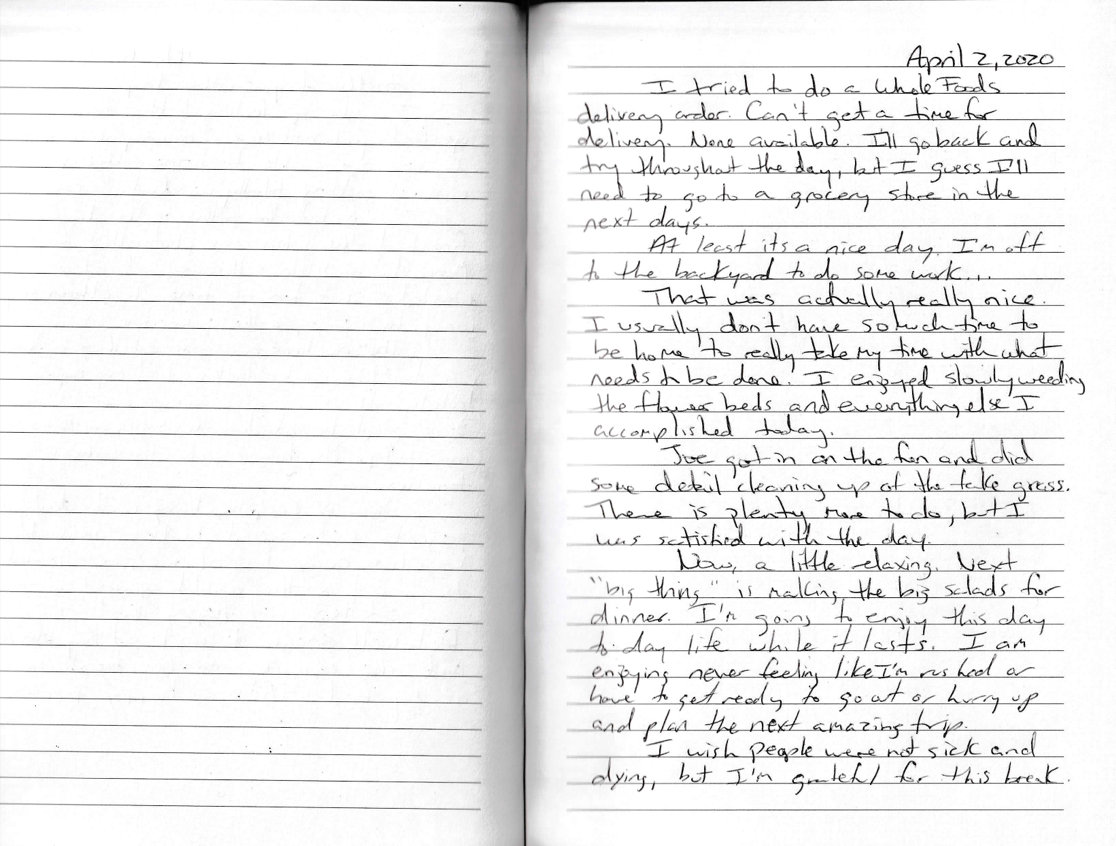 April 2, 2020
I tried to do a Whole Foods
delivery order. Can't get a time for
delivery. None available. I'll go back and
try throughout the day, but I guess I'll
need to go to a grocery store in the
next days.
At least its a nice day. I'm off
to the backyard to do some work...
That was actually really nice.
I usually don't have so much time to
be home to really take my time with what
needs to be done. I enjoyed slowly weeding
the flower beds and everything else I
accomplished today.
Joe got in on the fun and did
some detail cleaning up of the fake grass.
There is plenty more to do, but I
was satisfied with the day.
Now, a little relaxing. Next
"big thing" is making the big salads for
dinner. I'm going to enjoy this day
to day life while it lasts. I am
enjoying never feeling like I'm rushed or
have to get ready to go out or hurry up
and plan the next amazing trip.
I wish people were not sick and
dying, but I'm grateful for this break.